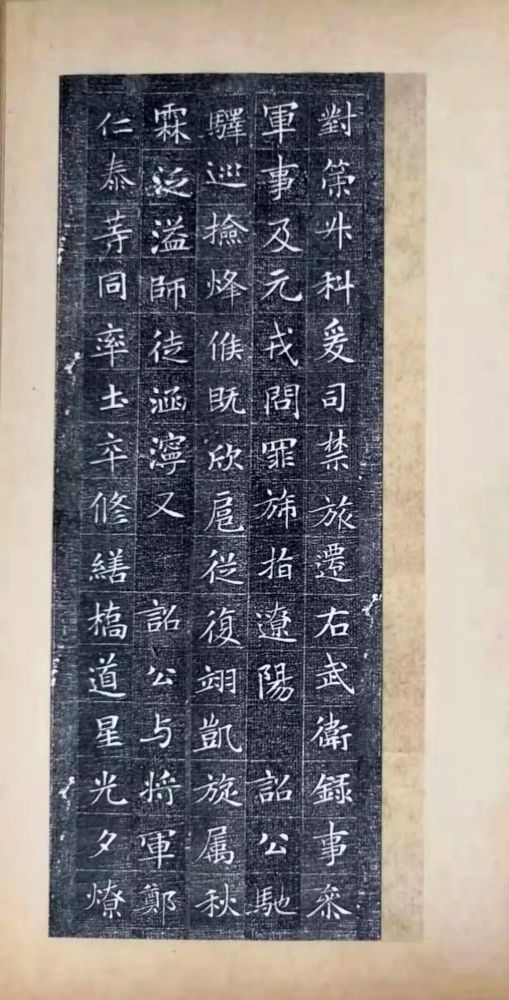 對策升科爰司禁旅遷右武衛錄事參
軍事及元戎問罪斾指遼陽 詔公馳
驛巡撿烽候既欣扈從復翊凱旋属秋
霖泛溢師徒涵濘又 詔公与將軍鄭
仁泰等同率士卒修繕橋道星光夕燎